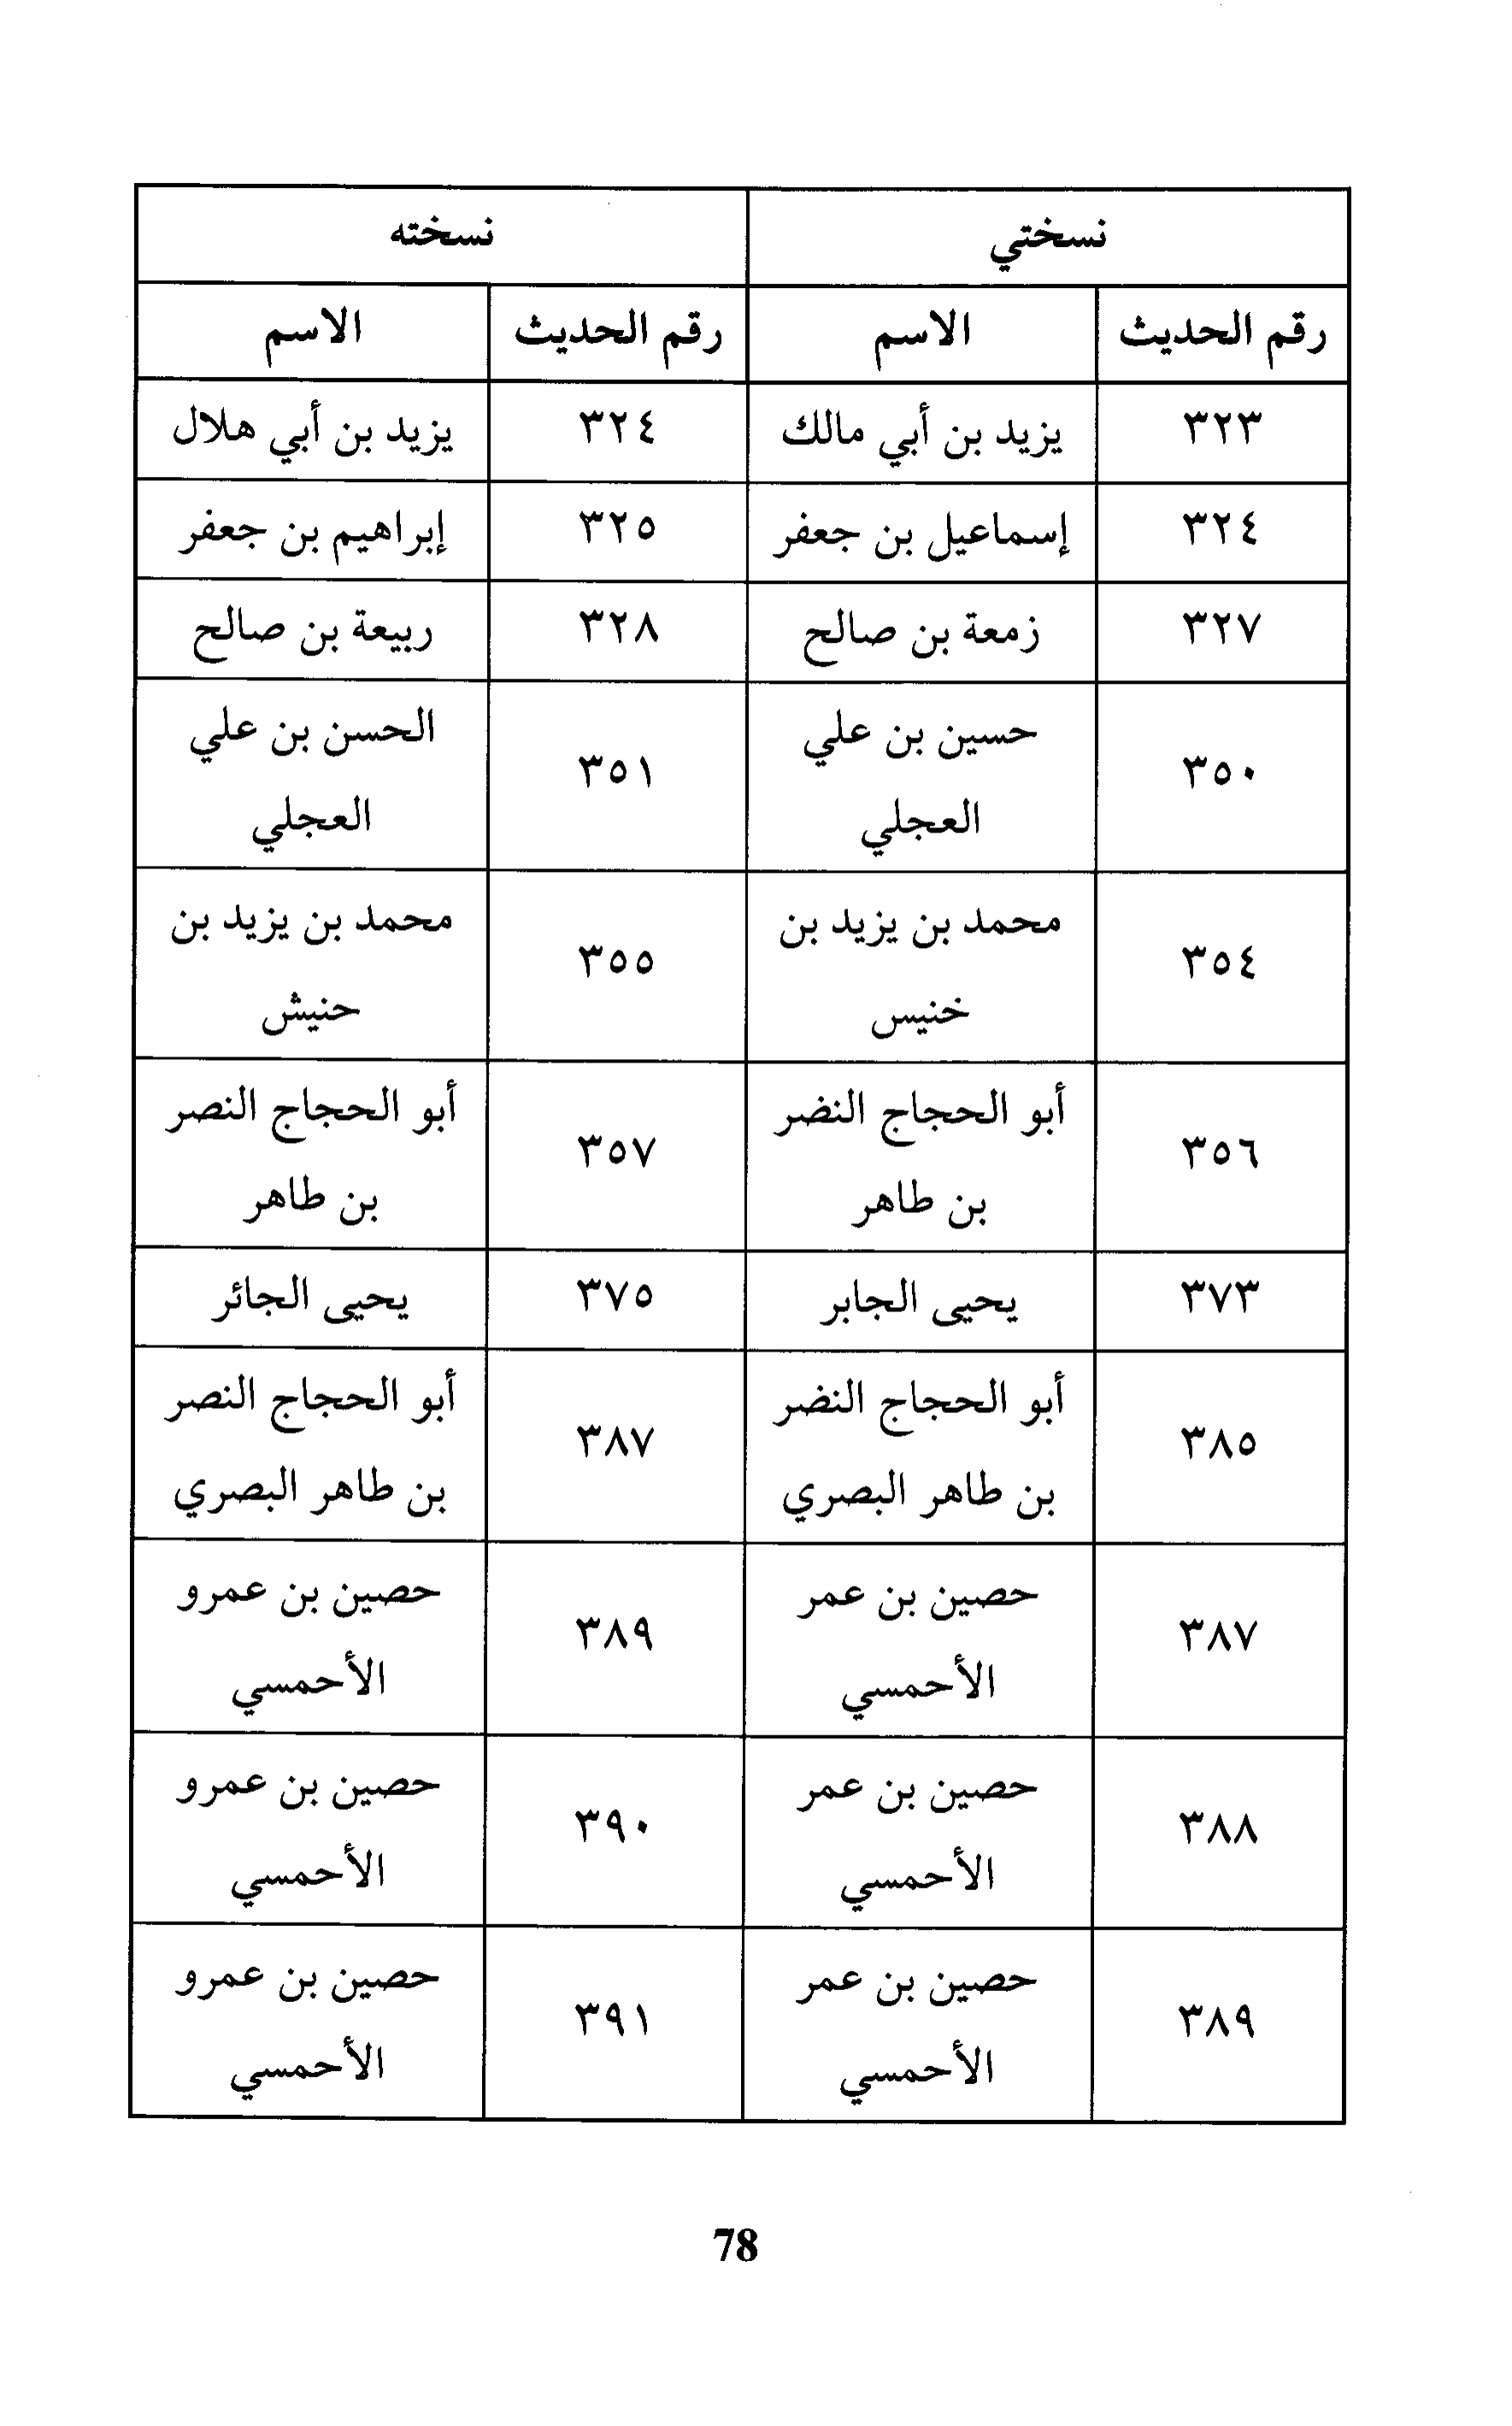 نسختي نسخته
رقم الحديث الاسم رقم الحديث الاسم
٣٢٣ يزيد بن أبي مالك ٣٢٤ يزيد بن أبي هلال
٣٢٤ إسماعيل بن جعفر ٣٢٥ إبراهيم بن جعفر
٣٢٧ زمعة بن صالح ٣٢٨ ربيعة بن صالح
٣٥٠ حسين بن علي العجلي ٣٥١ الحسن بن علي العجلي
٣٥٤ محمد بن يزيد بن خنيس ٣٥٥ محمد بن يزيد بن حنيش
٣٥٦ أبو الحجاج النضر بن طاهر ٣٥٧ أبو الحجاج النصر بن طاهر
٣٧٣ يحيى الجابر ٣٧٥ يحيى الجائر
٣٨٥ أبو الحجاج النضر بن طاهر البصري ٣٨٧ أبو الحجاج النصر بن طاهر البصري
٣٨٧ حصين بن عمر الأحمسي ٣٨٩ حصين بن عمرو الأحمسي
٣٨٨ حصين بن عمر الأحمسي ٣٩٠ حصين بن عمرو الأحمسي
٣٨٩ حصين بن عمر الأحمسي ٣٩١ حصين بن عمرو الأحمسي
78